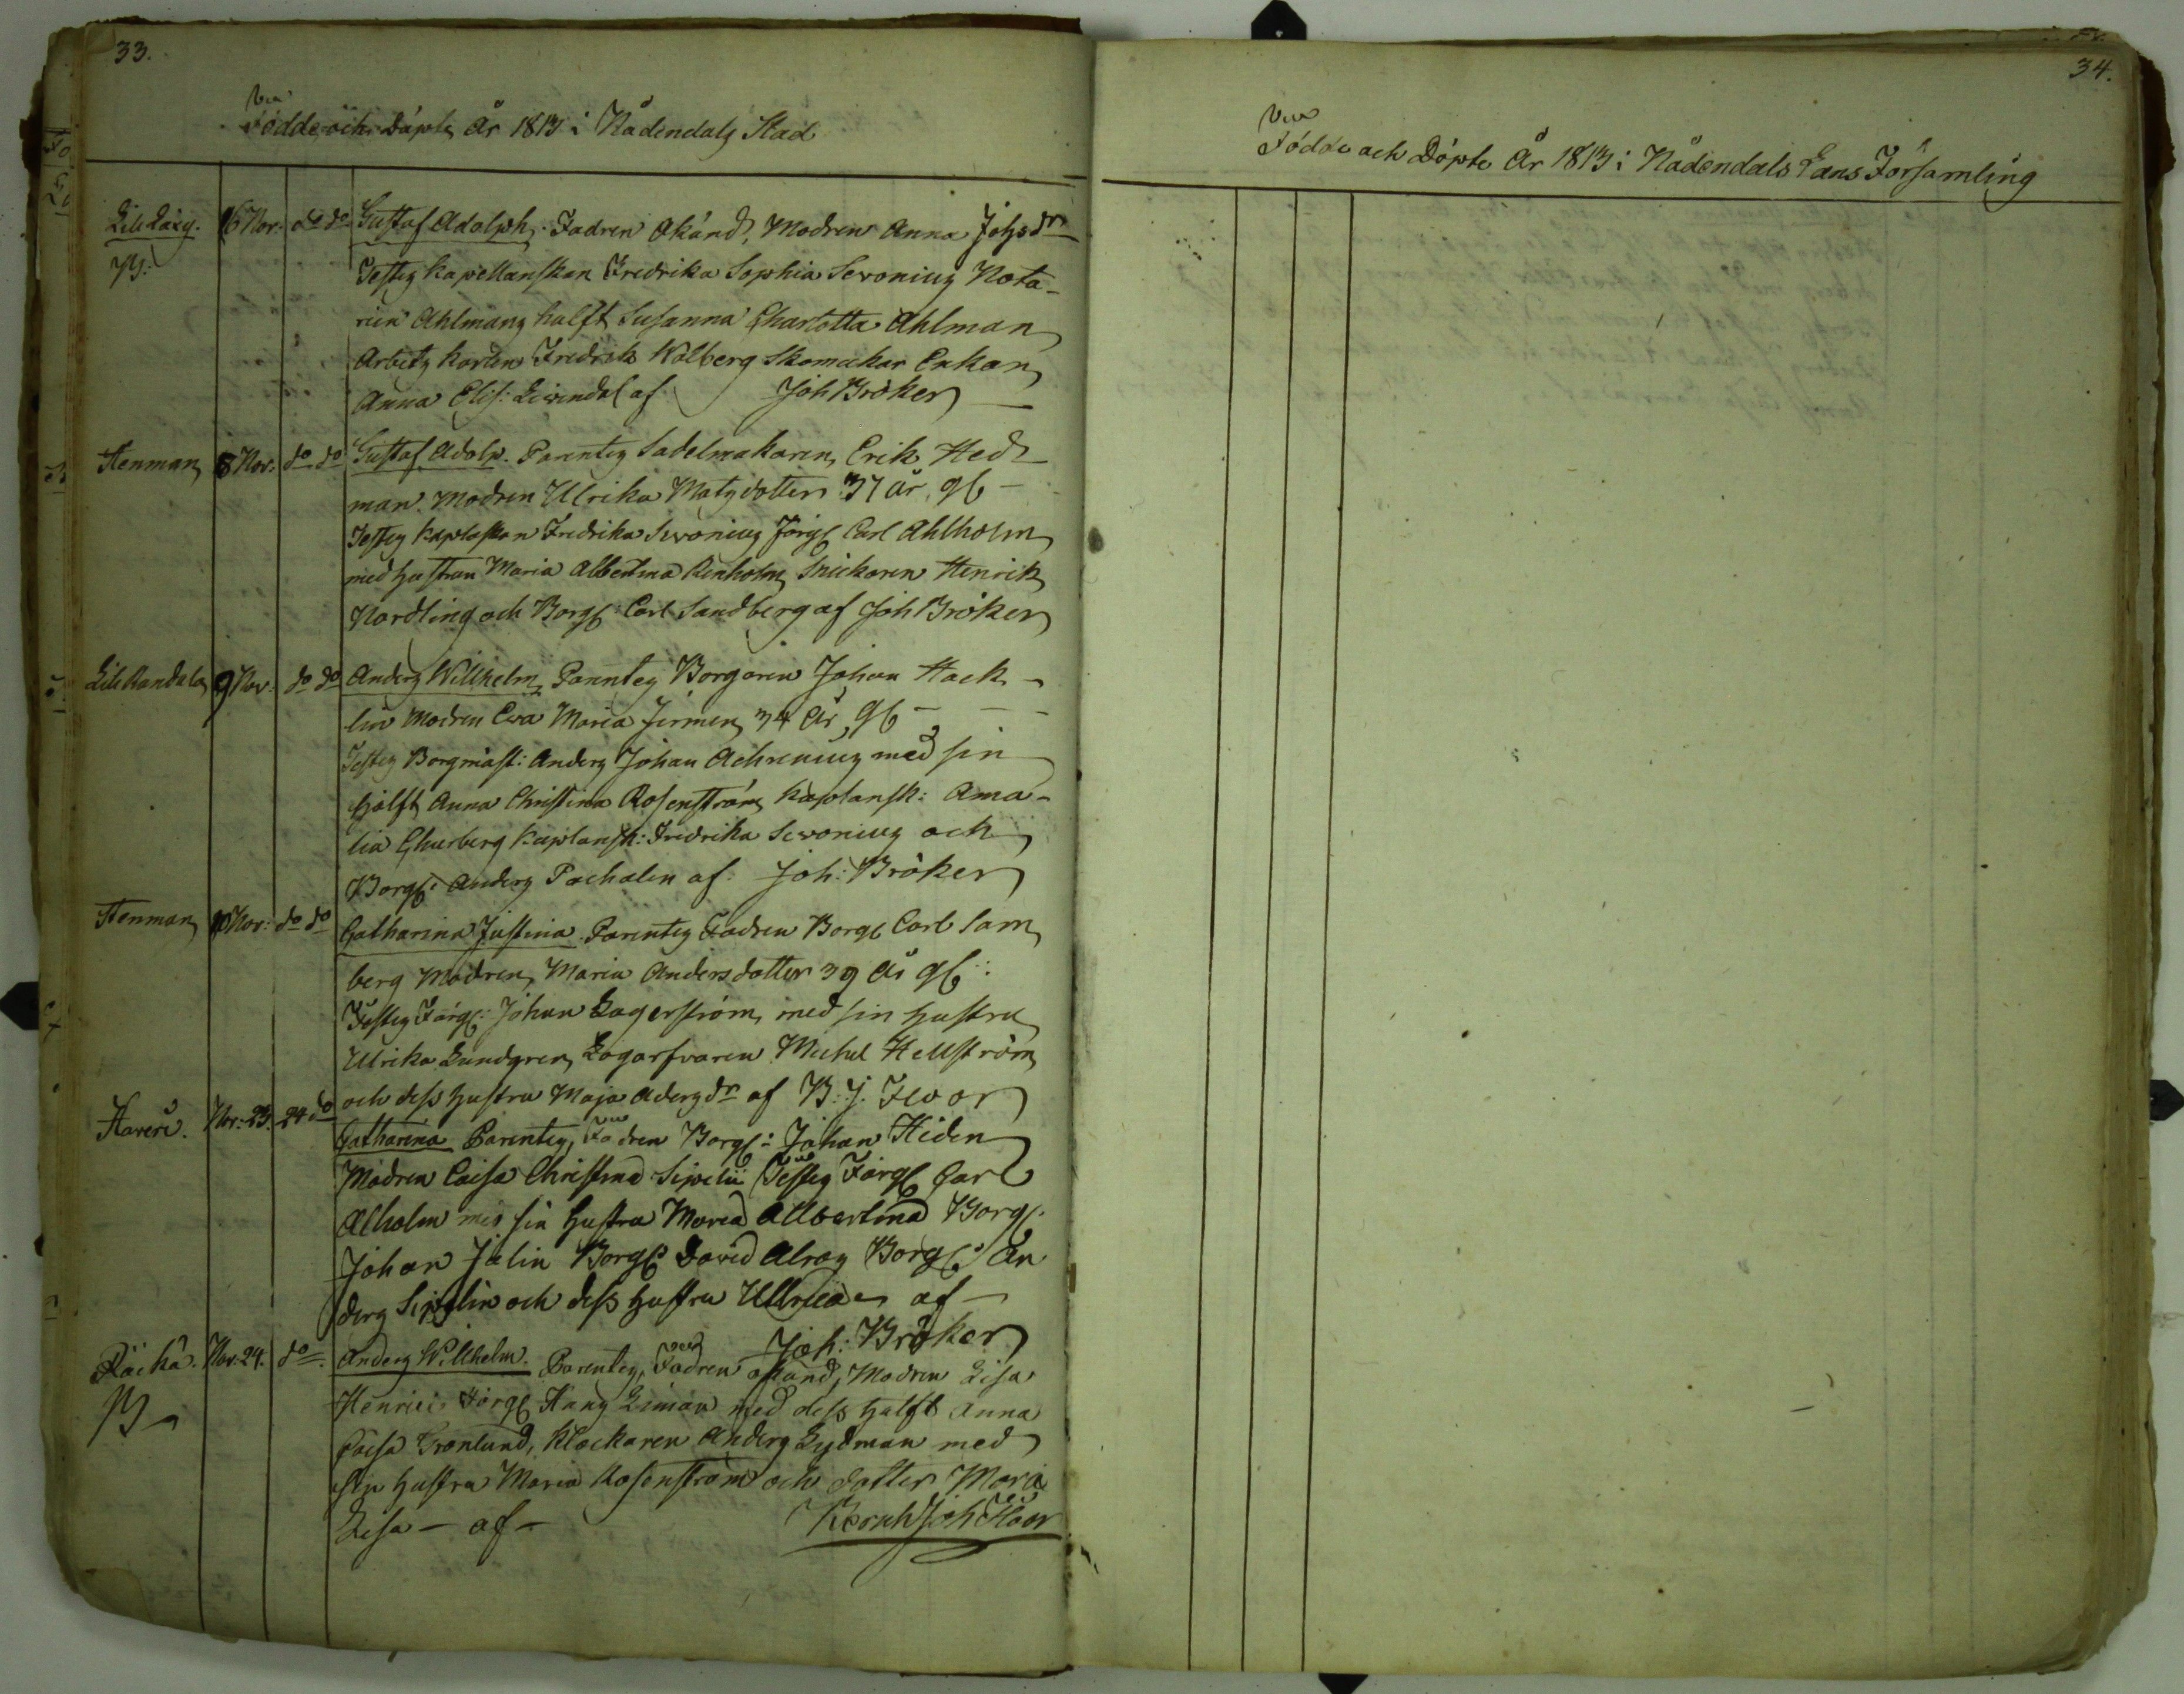 33.
Födde och Döpte År 1813 i Nådendals Stad
Gustaf Adolph. Fadren Okänd, Modren Anna Johsdr
Testes Kapellanskan Fredrika Sophia Sevonius Nota-
rien Ahlmans hälft Susanna Charlotta Ahlman
Arbets karlen Fredrik Wolberg Skomakar Enkan
Anna Elis: af Joh Bröker
16 Nov. do do
Stenman 8 Nov. do do Gustaf Adolp. Parentes Sadelmakaren Erik Hed-
man. Modren Ulrika Matsdotter 37 år gl
Testes Fredrika Sevonius Färg. Carl Ahlholm
med hustrun Maria Albertina Snickaren Henrik
Nordling och Borg: Carl Sandberg af Joh Bröker
9 Nov. do do Anders Willhelm Parentes Borgaren Johan Hack-
lin Modren Ewa Maria 34 år gl
Testes Borgmäst: Anders Johan Achrenius med sin
hjälft Anna Christina Rosenström Kaplansk: Ama-
lia Kaplansk: Fredrika Sevonius och
Borg: Anders Pachalen af: Joh: Bröker
Stenman 10 Nov: do do Catharina Justina. Parentes Fadren Borg Carl Sam
berg Modren Maria Andersdotter 39 år gl:
Testes Färg: Johan Lagerström med sin hustru
Ulrika Lundgren Michel Hellström
och dess hustru Maja Adersdr af B: J: Ivor
Nov: 23. 24 do Catharina Parentes, Fadren Borg: Johan Hiden
Modren Caisa Christina Testes Färg Carl
Alholm med sin hustru Maria Allbertina Borg:
Johan Jalin Borg: David Borg: An
ders och dess hustru Ullrica af
Joh: Bröker
Nov: 24. do. Anders Willhelm. Parentes, Fadren okänd, Modren Lisa
Henrici Färg Hans med dess hälft Anna
Caisa Grönlund, Klockaren Anders Lydman med
sin hustru Maria Rosenström och dotter Maria
Lisa - af -
34.
Födde och Döpte År 1813 i Nådendals Lans Församling